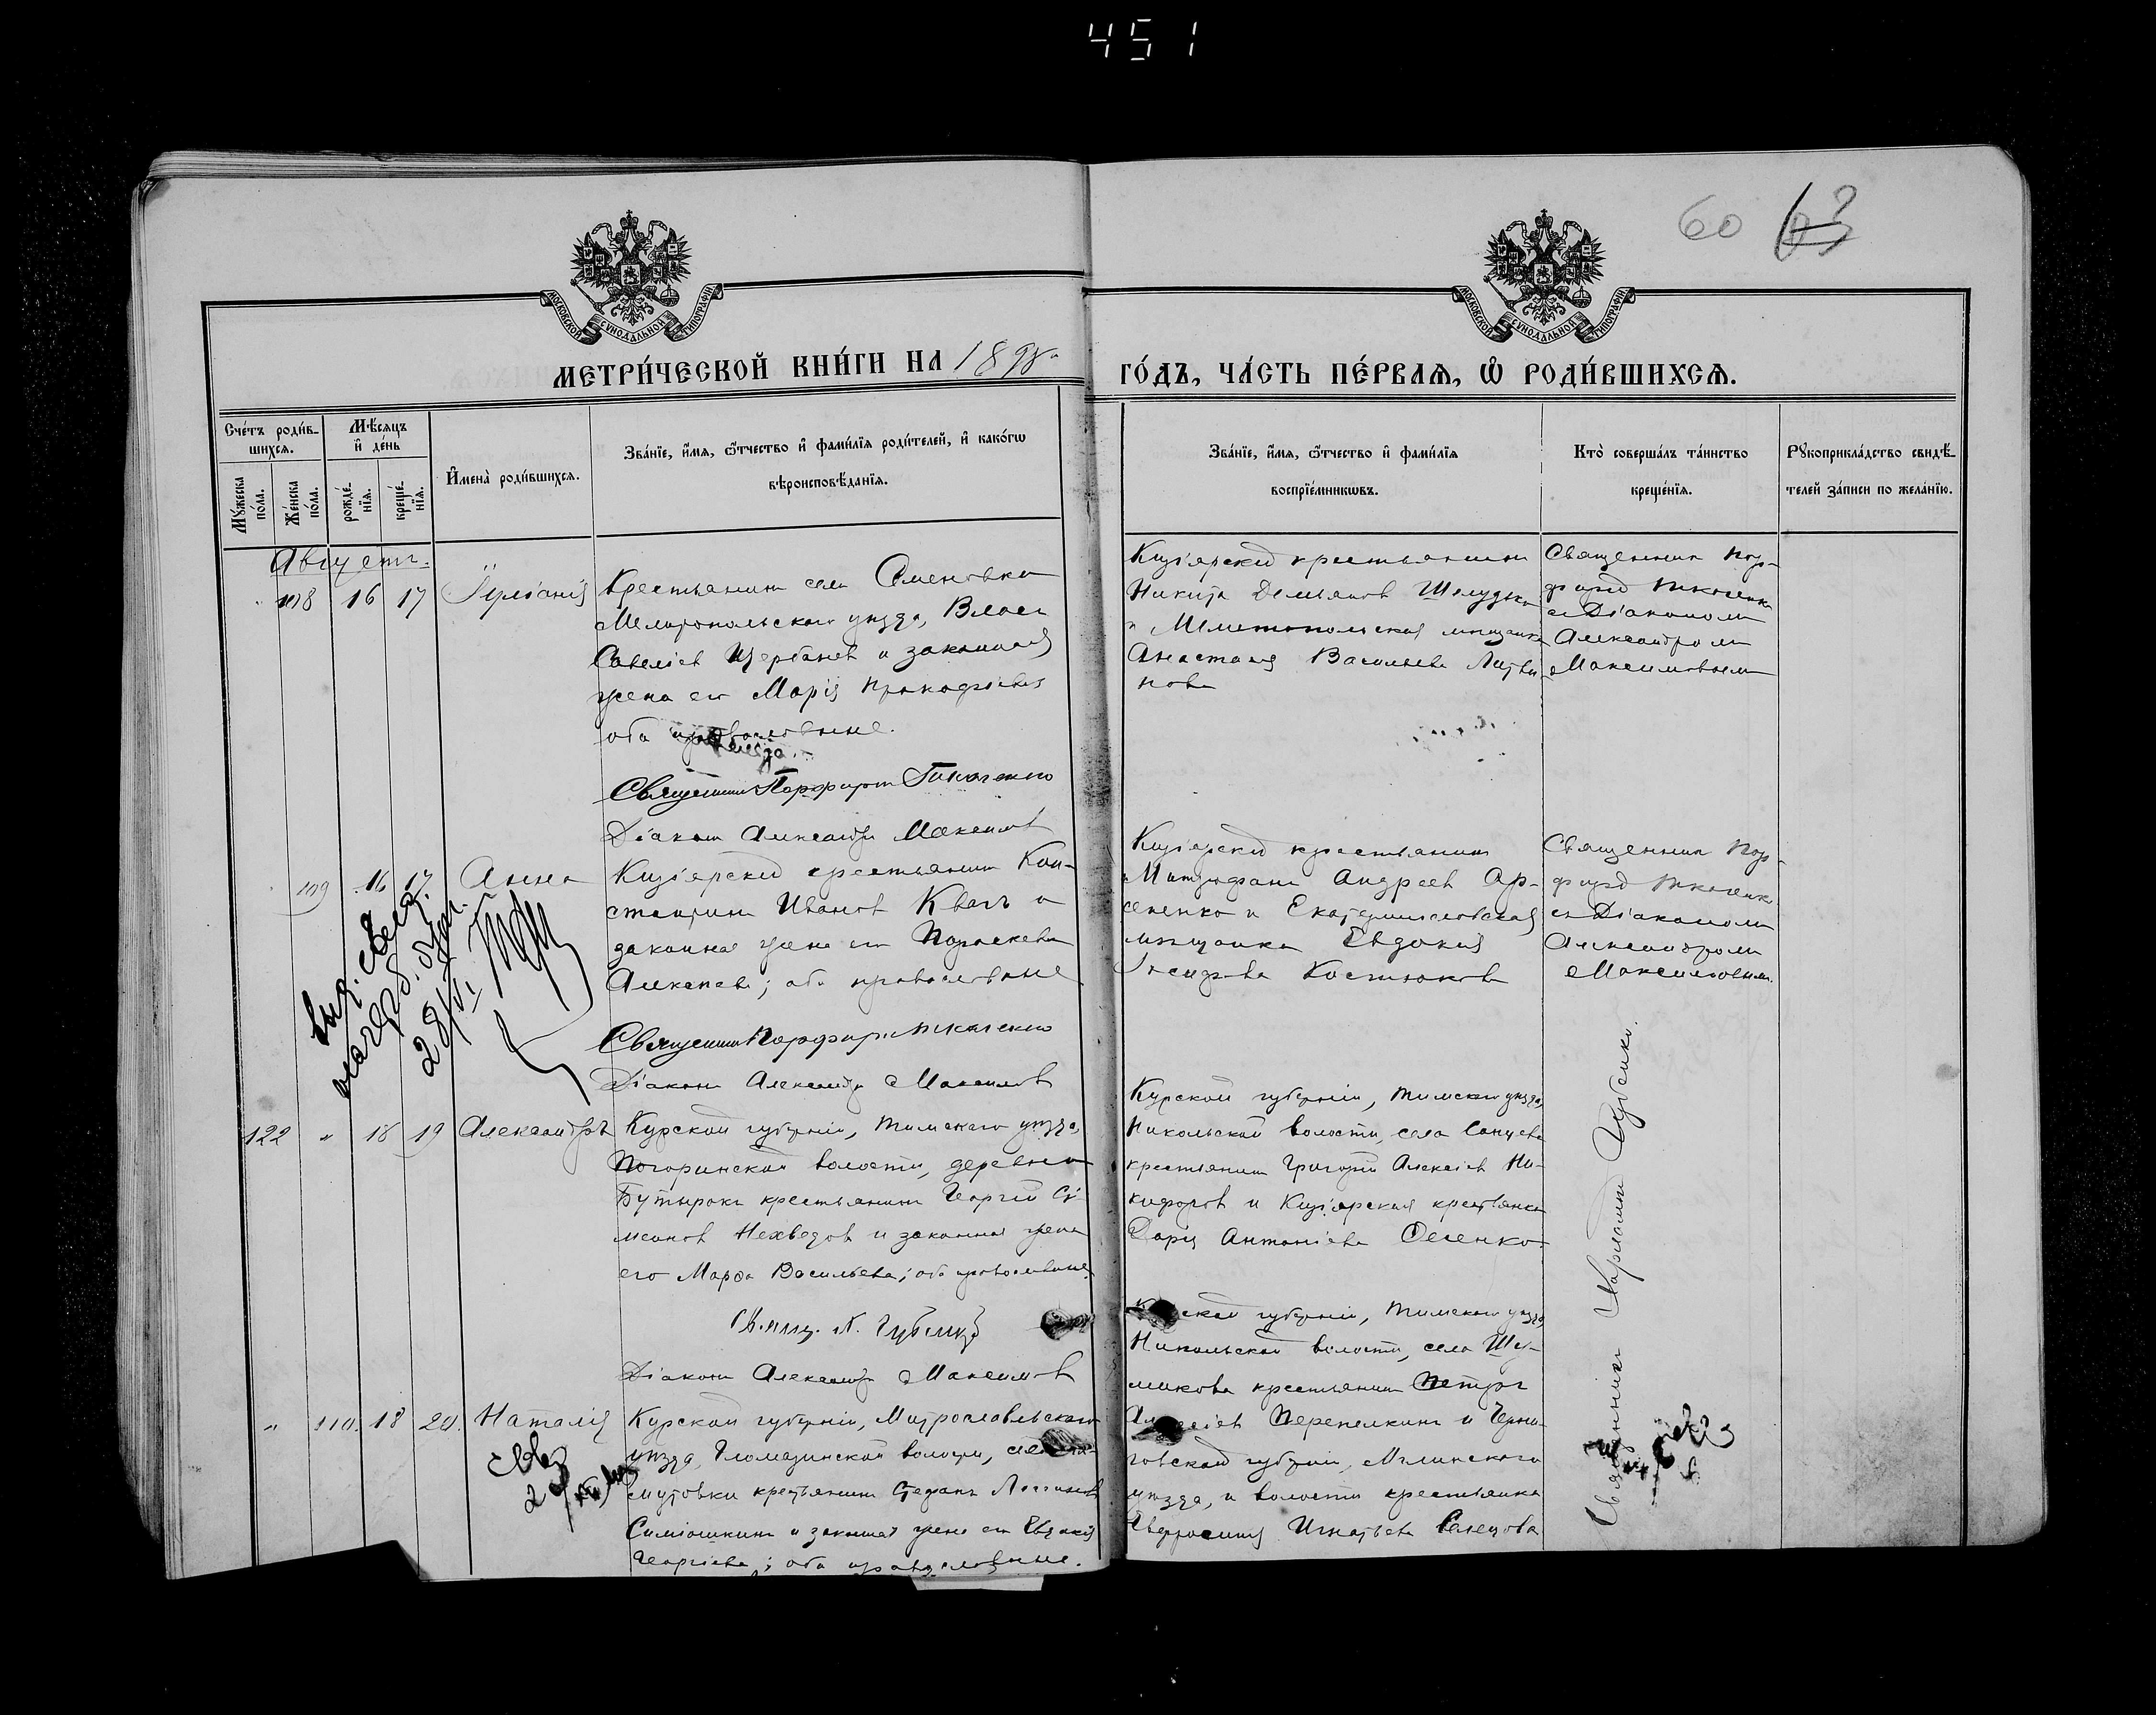 451
60 63
МОСКОВСКОЙ СѴНОДАЛЬНОЙ ТИПОГРАФІИ
МОСКОВСКОЙ СѴНОДАЛЬНОЙ ТИПОГРАФІИ
МЕТРИ́ЧЕСКОЙ КНИ́ГИ НА 1898
ГО́ДЪ, ЧА́СТЬ ПЕ́РВАѦ, Ѡ҆ РОДИ́ВШИХСѦ.
Сче́тъ роди́в-
шихсѧ.
Мѣ́сѧцъ
и҆ де́нь
Мꙋ́жеска
по́ла.
Же́нска
по́ла.
рожде́-
нїѧ.
креще́-
нїѧ.
И҆мена̀ роди́вшихсѧ.
Зва́нїе, и҆́мѧ, ѻ҆́тчество и҆ фами́лїѧ роди́телей, и҆ како́гѡ
вѣроисповѣ́данїѧ.
Зва́нїе, и҆́мѧ, ѻ҆́тчество и҆ фами́лїѧ
воспрїе́мникѡвъ.
Кто̀ соверша́лъ та́инство
креще́нїѧ.
Рꙋкоприкла́дство свидѣ́-
телей за́писи по жела́нїю.
Августъ.
108 16 17 Іуліанія
Крестьянинъ села Семеновки
Мелитопольскаго уѣзда, Власъ
Савеліевъ Щербаневъ и законная
жена его Марія Прокофіева
оба православные.
Священникъ Порфирій Ткаченко
Діаконъ Александръ Максимовъ
Кизіярскій крестьянинъ
Никита Демьяновъ Шелудько
и Мелитопольская мѣщанка
Анастасія Васильева Литви-
нова
Священникъ Пор-
фирій Ткаченко
съ Діакономъ
Александромъ
Максимовымъ
109 16 17 Анна
Кизіярскій крестьянинъ Кон-
стантинъ Ивановъ Квачъ и
законная жена его Параскева
Алексѣева; оба православные
Священникъ Порфирій Ткаченко
Діаконъ Александръ Максимовъ
Кизіярскій крестьянинъ
Митрофанъ Андреевъ Ар-
сененко и Екатеринославская
мѣщанка Евдокія
Исидорова Костюкова
Священникъ Пор-
фирій Ткаченко
съ Діакономъ
Александромъ
Максимовымъ.
28/VI
122 " 18 19 Александръ
Курской губерніи, Тимскаго уѣзда,
Погоринской волости, деревни
Бутырокъ крестьянинъ Георгій Сѵ-
меоновъ Нехведовъ и законная жена
его Марѳа Васильева; оба православные.
Свящ. Х. Губенко
Діаконъ Александръ Максимовъ
Курской губерніи, Тимскаго уѣзда,
Никольской волости, села Сонцева
крестьянинъ Григорій Алексѣевъ Ни-
кифоровъ и Кизіярская крестьянка
Дарія Антоніева Оленко.
Священникъ Харлампій Губенко.
" 110. 18 20. Наталія
Курской губерніи, Дмитріевскаго
уѣзда, Гломаздинской волости,
крестьянинъ Стефанъ Логиновъ
Симошкинъ и законная жена его Евдокія
Георгіева; оба православные.
Курской губерніи, Тимскаго уѣзда,
Никольской волости, села Ше-
микова крестьянинъ Петръ
Алексѣевъ Перепелкинъ и Черни-
говской губерніи, Мглинскаго
уѣзда, и волости крестьянка
Евфросинія Игнатьева Селецова